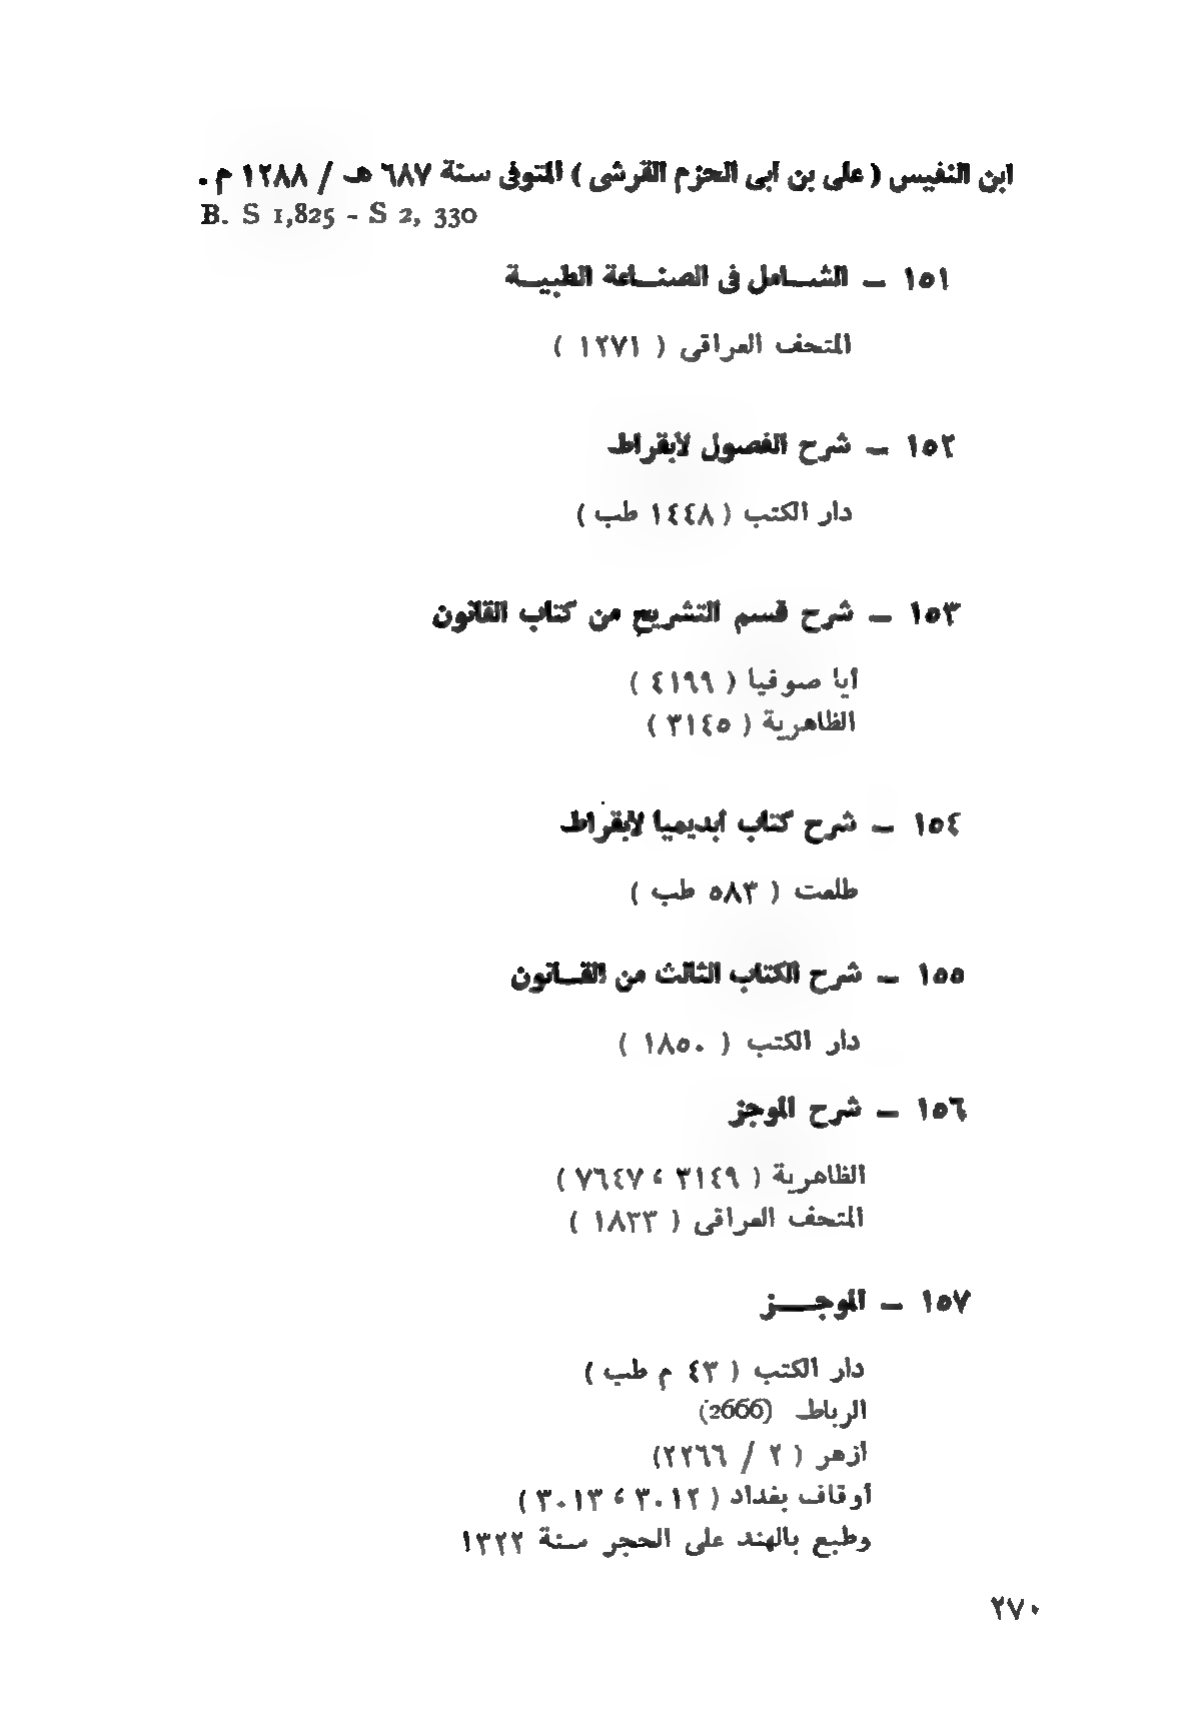 ابن النفيس ( على بن ابى الحزم القرشى ) المتوفى سنة ٦٨٧ هـ / ١٢٨٨ م .
B. S 1,825 - S 2, 330
١٥١ – الشـــامل فى الصنـــاعة الطبيـــة
المتحف العراقى ( ١٢٧١ )
١٥٢ – شرح الفصول لأبقراط
دار الكتب ( ١٤٤٨ طب )
١٥٣ – شرح قسم التشريح من كتاب القانون
أيا صوفيا ( ٤١٩٩ )
الظاهرية ( ٣١٤٥ )
١٥٤ – شرح كتاب أبديميا لابقراط
طلعت ( ٥٨٣ طب )
١٥٥ – شرح الكتاب الثالث من القـــانون
دار الكتب ( ١٨٥٠ )
١٥٦ – شرح الموجز
الظاهرية ( ٣١٤٩ ، ٧٦٤٧ )
المتحف العراقى ( ١٨٣٣ )
١٥٧ – الموجـــــز
دار الكتب ( ٤٣ م طب )
الرباط (2666)
ازهر ( ٢ / ٢٢٦٦)
أوقاف بغداد ( ٣٠١٢ ، ٣٠١٣ )
وطبع بالهند على الحجر سنة ١٣٢٢
٢٧٠